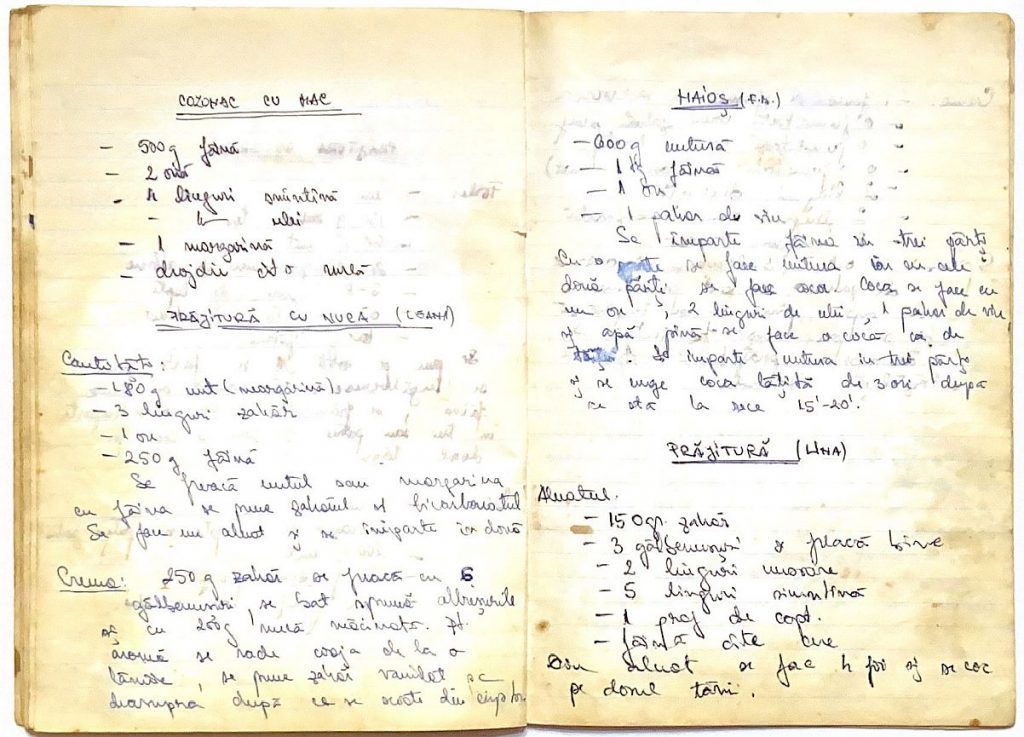 COZONAC CU MAC
- 500 g făină
- 2 ouă
- 4 linguri smîntînă
- ulei
- 1 margarină
- drojdie cît o nucă
PRĂJITURĂ CU NUCĂ (LEANA)
Cantități:
- 180 g unt (margarină)
- 3 linguri zahăr
- 1 ou
- 250 g făină
Se freacă untul sau margarina
cu făina se pune zahărul și bicarbonatul
Se face un aluat și se împarte în două
Crema: 250 g zahăr se freacă cu 6
gălbenușuri, se bat spumă albușurile
și cu 200g nucă măcinată. Pt.
aromă se rade coaja de la o
lămîie, se pune zahăr vanilat pe
deasupra după ce se scoate din cuptor
HAIOȘ (F.B.)
- 600 g untură
- 1 kg făină
- 1 ou
- 1 pahar de vin
Se împarte făina în trei părți
Cu o parte se face untura iar cu cele
două părți se face coca. Coca se face cu
un ou, 2 linguri de ulei, 1 pahar de vin
și apă pînă se face o cocă ca de
Se împarte untura în trei părți
și se unge coca lățită de 3 ori după
ce stă la rece 15'-20'.
PRĂJITURĂ (LINA)
Aluatul.
- 150 gr. zahăr
- 3 gălbenușuri se freacă bine
- 2 linguri
- 5 linguri smîntînă
- 1 praf de copt.
- făină cîte cere
Din aluat se fac 4 foi și se coc
pe dosul tăvii.